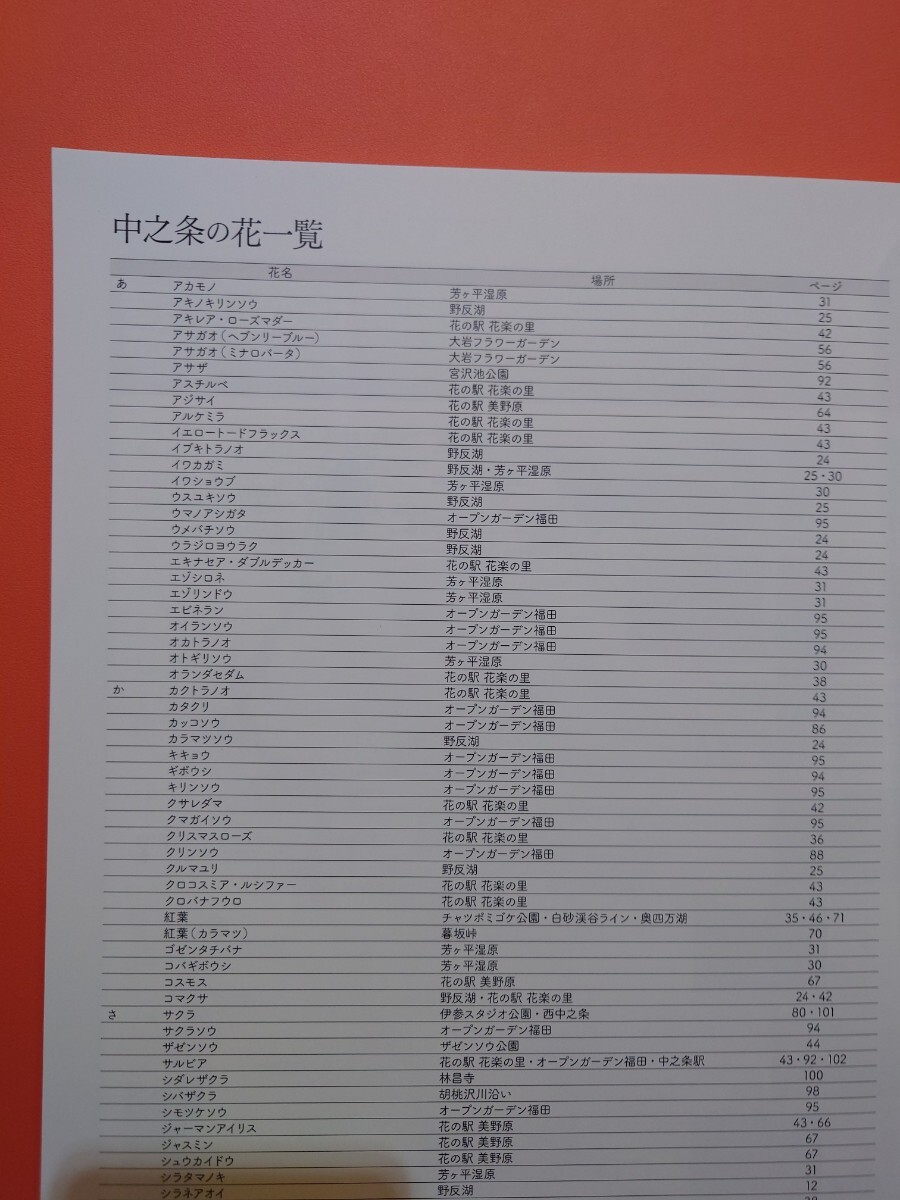 中之条の花一覧
花名 場所 ページ
あ アカモノ 芳ヶ平湿原 31
アキノキリンソウ 野反湖 25
アキレア・ローズマダー 花の駅 花楽の里 42
アサガオ(ヘブンリーブルー) 大岩フラワーガーデン 56
アサガオ(ミナロバータ) 大岩フラワーガーデン 56
アサザ 宮沢池公園 92
アスチルベ 花の駅 花楽の里 43
アジサイ 花の駅 美野原 64
アルケミラ 花の駅 花楽の里 43
イエロートードフラックス 花の駅 花楽の里 43
イブキトラノオ 野反湖 24
イワカガミ 野反湖・芳ヶ平湿原 25・30
イワショウブ 芳ヶ平湿原 30
ウスユキソウ 野反湖 25
ウマノアシガタ オープンガーデン福田 95
ウメバチソウ 野反湖 24
ウラジロヨウラク 野反湖 24
エキナセア・ダブルデッカー 花の駅 花楽の里 43
エゾシロネ 芳ヶ平湿原 31
エゾリンドウ 芳ヶ平湿原 31
エビネラン オープンガーデン福田 95
オイランソウ オープンガーデン福田 95
オカトラノオ オープンガーデン福田 94
オトギリソウ 芳ヶ平湿原 30
オランダセダム 花の駅 花楽の里 38
か カクトラノオ 花の駅 花楽の里 43
カタクリ オープンガーデン福田 94
カッコソウ オープンガーデン福田 86
カラマツソウ 野反湖 24
キキョウ オープンガーデン福田 95
ギボウシ オープンガーデン福田 94
キリンソウ オープンガーデン福田 95
クサレダマ 花の駅 花楽の里 42
クマガイソウ オープンガーデン福田 95
クリスマスローズ 花の駅 花楽の里 36
クリンソウ オープンガーデン福田 88
クルマユリ 野反湖 25
クロコスミア・ルシファー 花の駅 花楽の里 43
クロバナフウロ 花の駅 花楽の里 43
紅葉 チャツボミゴケ公園・白砂渓谷ライン・奥四万湖 35・46・71
紅葉(カラマツ) 暮坂峠 70
ゴゼンタチバナ 芳ヶ平湿原 31
コバギボウシ 芳ヶ平湿原 30
コスモス 花の駅 美野原 67
コマクサ 野反湖・花の駅 花楽の里 24・42
さ サクラ 伊参スタジオ公園・西中之条 80・101
サクラソウ オープンガーデン福田 94
ザゼンソウ ザゼンソウ公園 44
サルビア 花の駅 花楽の里・オープンガーデン福田・中之条駅 43・92・102
シダレザクラ 林昌寺 100
シバザクラ 胡桃沢川沿い 98
シモツケソウ オープンガーデン福田 95
ジャーマンアイリス 花の駅 美野原 43・66
ジャスミン 花の駅 美野原 67
シュウカイドウ 花の駅 美野原 67
シラタマノキ 芳ヶ平湿原 31
シラネアオイ 野反湖 12